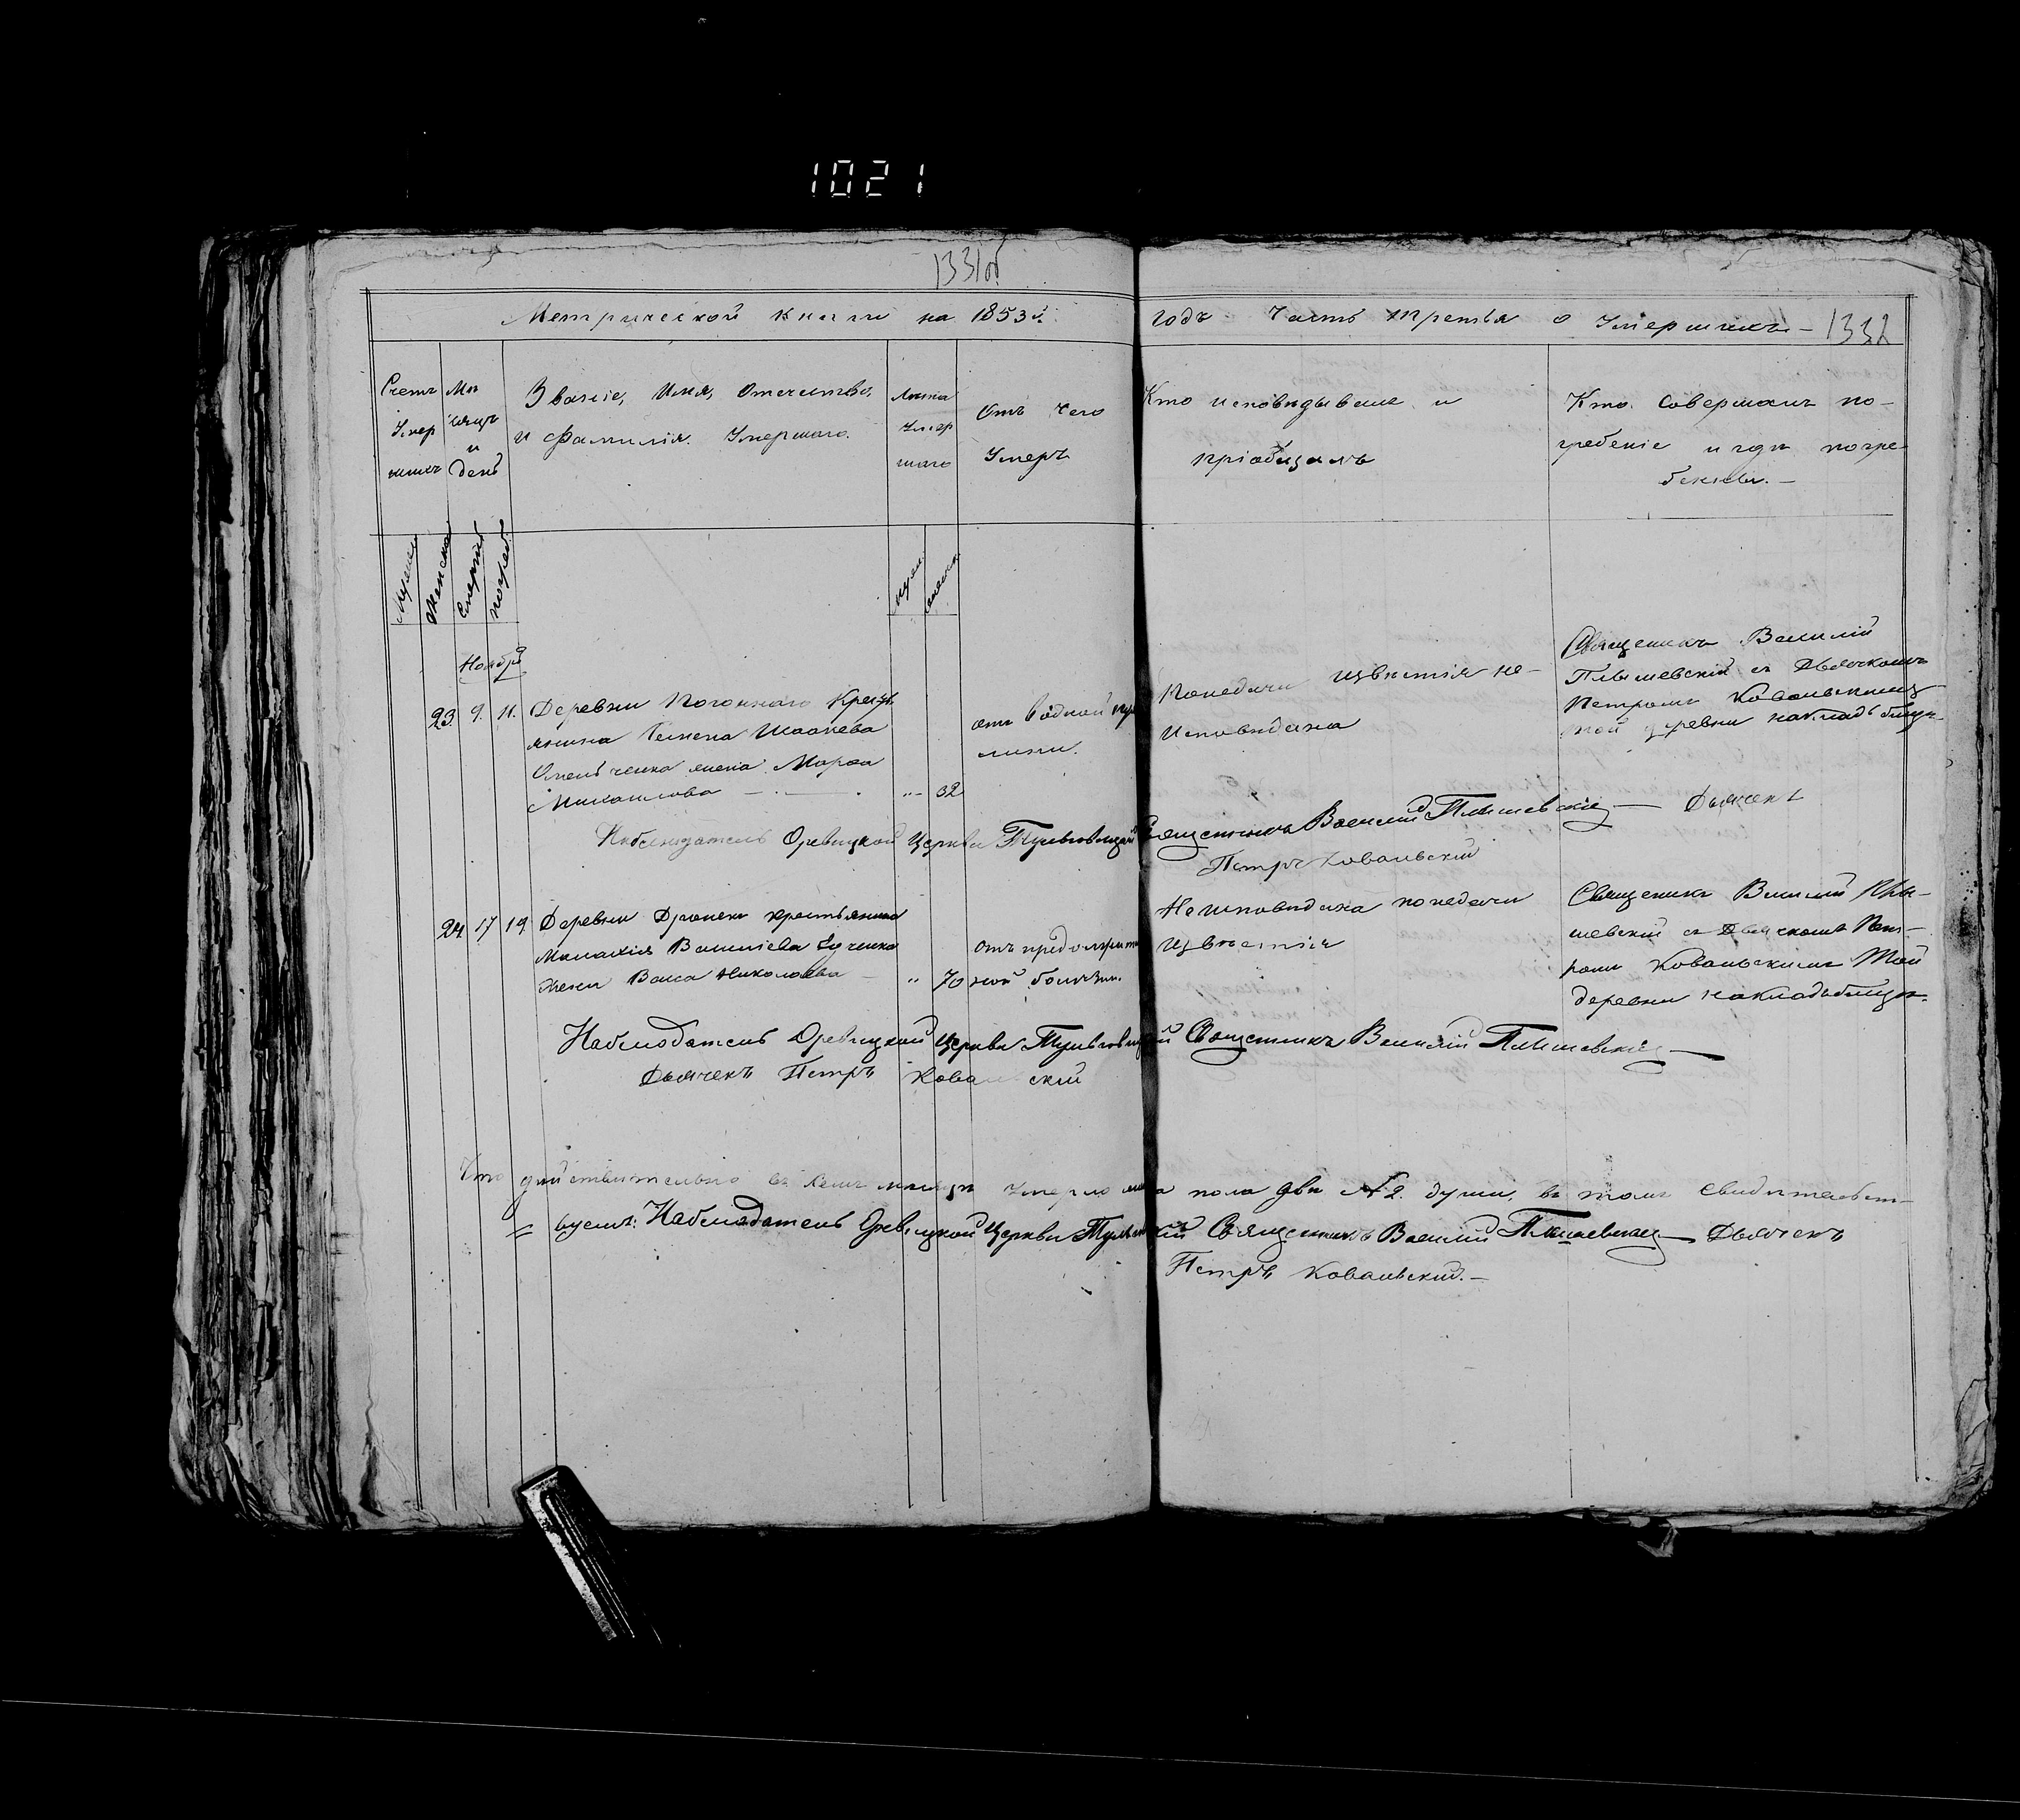 1021
1331об
Метрической книги на 1853й годъ Часть третья о Умершихъ – 1332
Счетъ Умер шихъ
Мѣ сяцъ и день
Званіе, Имя, Отечество, и фамилія Умершаго.
Лѣта Умер шаго
Отъ чего Умеръ
Кто исповѣдывалъ и пріобщалъ
Кто Совершалъ по- гребеніе и гдѣ погре- бены. –
Мужеск Женска Смерти погреб.
муж женск
Ноября
23 9. 11. Деревни Погоннаго Кресть
янина Семена
Омельченка жена Марѳа
Михайлова – 32
отъ водной
Понедачи извѣстія не-
Исповѣдана
Священникъ Василій
Плышевскій съ Дьячкомъ
Петромъ Ковальскимъ
той деревни накладбищѣ
Наблюдатель Оревицкой Церкви Священникъ Василій Плышевскій – Дьячекъ
Петръ Ковальскій
24 17 19 Деревни Дронекъ крестьянина
Малахія Василіева Лученка
жена Васса Николаева – " 70
отъ продолжитель
ной болѣзни.
Неисповѣдана понедачи
извѣстія
Священникъ Василій Плы-
шевскій съ Дьячкомъ Пет-
ромъ Ковальскимъ Той
деревни накладбищѣ.
Наблюдатель Оревицкой Церкви Священникъ Василій Плышевскій –
Дьячекъ Петръ Ковальскій
Что дѣйствительно въ семъ мѣсяцѣ умерло пола двѣ №2. души, въ томъ свидѣтельст-
= вуемъ: Наблюдатель Оревицкой Церкви Священникъ Василій Плышевскій – Дьячекъ
Петръ Ковальскій. –